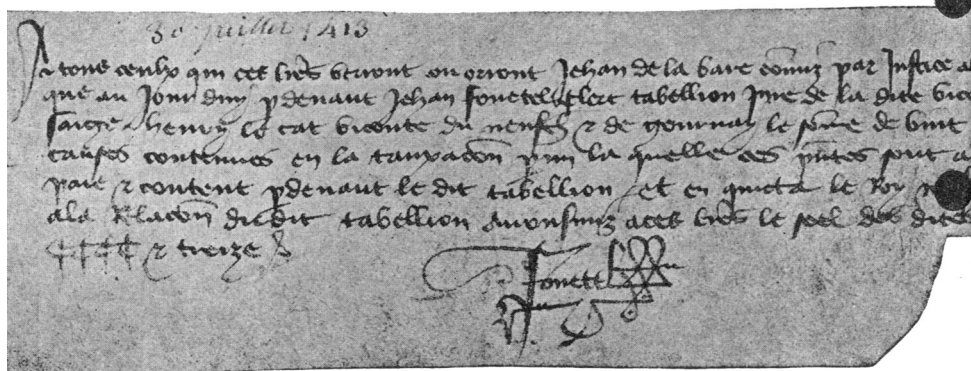 30 juillet 1413
A tous ceulx qui ces lrēs verront ou orront Jehan de la bare commiz par Justice a
que au Jour duy pdevant Jehan Fouetel clerc tabellion Jure de la dite vic
saige henry le cat viconte du neufch & de gournay le so͞me de vint
causes contenues en la tauxacōn pmi la quelle ces pn̄tes sont a
paie & content pdevant le dit tabellion et en quicta le Roy n
a la Rlacōn du dit tabellion avons mis a ces lrēs le seel des dites
cccc & treize
Fouetel